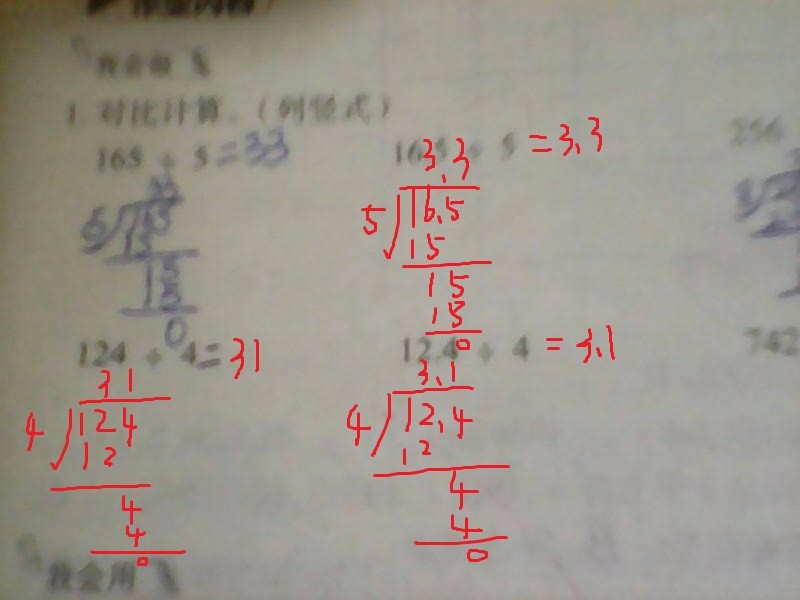 我会做
1. 对比计算。(列竖式)
165 ÷ 5 = 33
33
5 165
15
15
15
0
16.5 ÷ 5 = 3.3
3.3
5 16.5
15
15
15
0
256
124 ÷ 4 = 31
31
4 124
12
4
4
0
12.4 ÷ 4 = 3.1
3.1
4 12.4
12
4
4
0
742
我会用